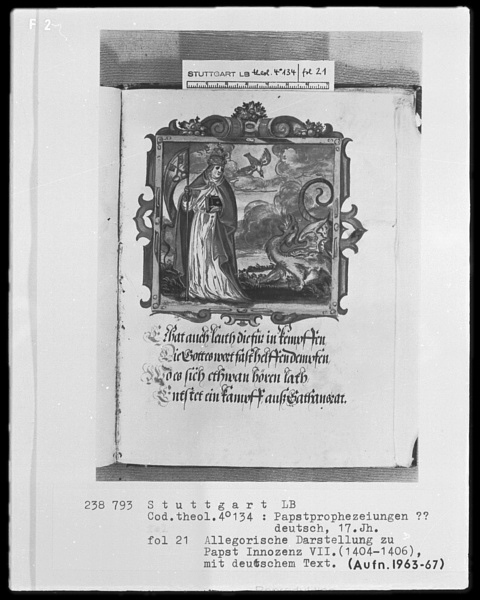 F 2
STUTTGART LB theol. 4° 134 fol 21
Er hat auch leuth die für in kempffen
Die Gottes wort fast helffen dempfen
Wo es sich ethwan hören lath
Entstet ein kampff auß Sathans rat.
238 793 Stuttgart LB
Cod.theol.4°134 : Papstprophezeiungen ??
deutsch, 17.Jh.
fol 21 Allegorische Darstellung zu
Papst Innozenz VII.(1404-1406),
mit deutschem Text. (Aufn.1963-67)